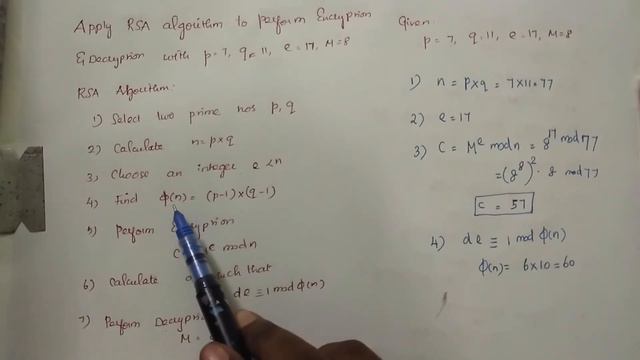 Apply RSA algorithm to perform Encryption
& Decryption with p=7, q=11, e=17, M=8
RSA Algorithm:
1) Select two prime nos p, q
2) Calculate n=p×q
3) Choose an integer e<n
4) Find ϕ(n) = (p-1)×(q-1)
5) Perform
C e modn
6) Calculate such that
de ≡ 1 mod ϕ(n)
7) Perform
M =
Given
p=7, q=11, e=17, M=8
1) n = p×q = 7×11=77
2) e=17
3) C = M^e mod n = 8^17 mod 77
= (8^8)^2 · 8 mod 77
C = 57
4) de ≡ 1 mod ϕ(n)
ϕ(n) = 6×10=60